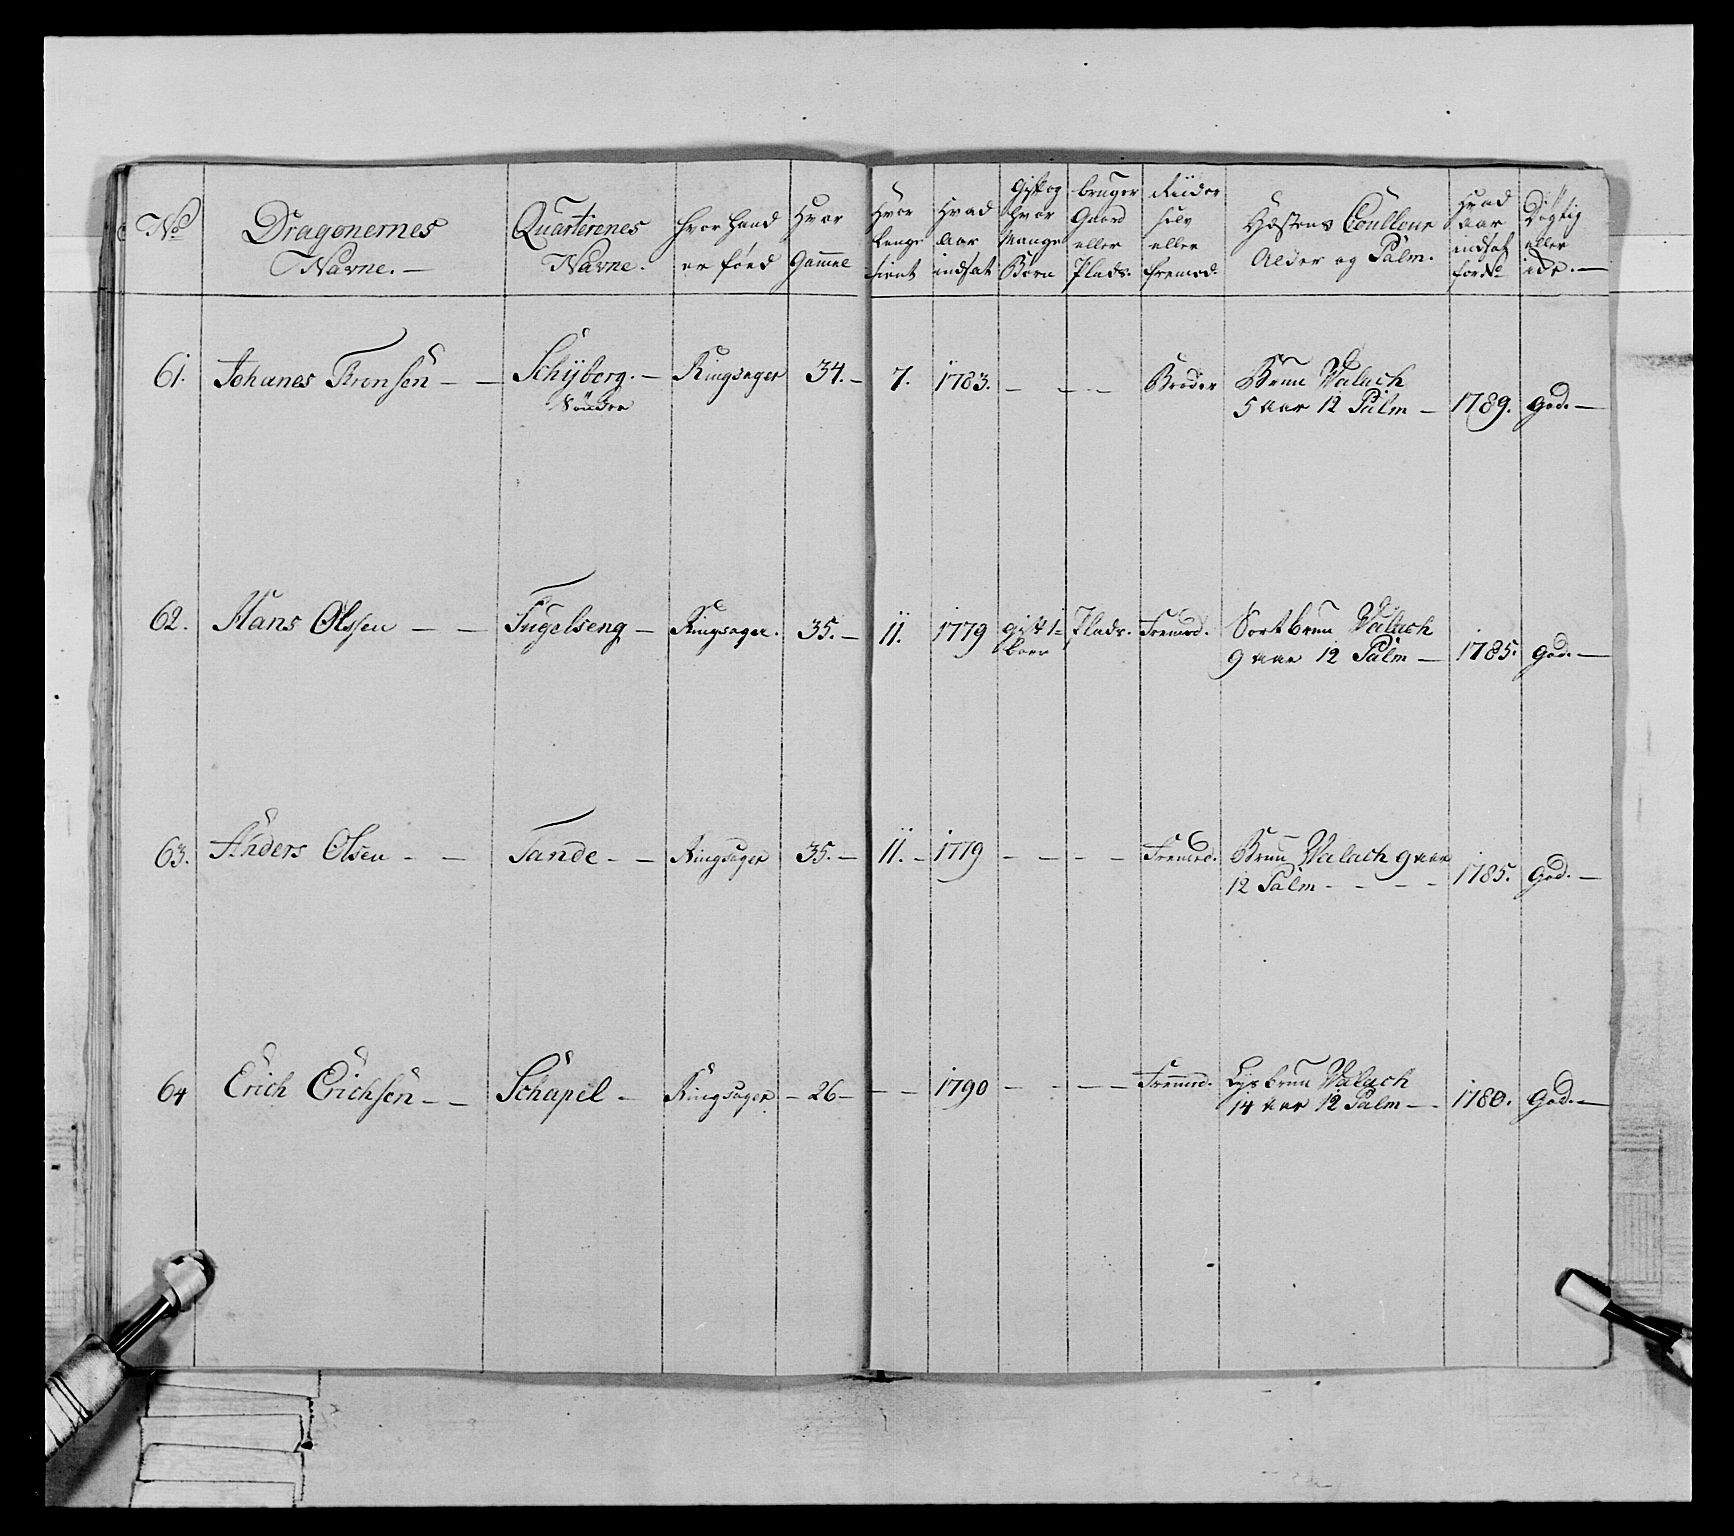 No
Dragonernes
Navne. —
Quarterenes
Navne.
hvor hand
er föed
Hvor
Gammel
Hvor
Lenge
tient
Hvad
Aar
indsat
Gift og
hvor
Mange
Börn
bruger
Gaard
eller
Plads.
Riider
selv
eller
fremed.
Hæstens Coulleur
Alder og Palm.
Hvad
Aar
indsat
Dögtig
eller
61. Johanes Tronsen — — Schyberg. — Ringsager 34. — 7. 1783. — — — Broder Brun Valach
Söndre 5 aar 12 Palm — 1789. god. —
62. Hans Olssen — — Fugelseng — Ringsager. 35. — 11. 1779 gift 1 Plads. Fremed. Sortbrun Valach
barn 9 aar 12 Palm — 1785. god. —
63. Anders Olsen — — Tande — — Ringsager 35. — 11. — 1779 — — — — Fremed. Brun Valach 9 aar
12 Palm — — — — 1785. god. —
64 Erich Erichsen — — Schapel — Ringsager — 26 — — — 1790 — — — — Fremed. Lysbrun Valach
14 aar 12 Palm — 1780. god. —